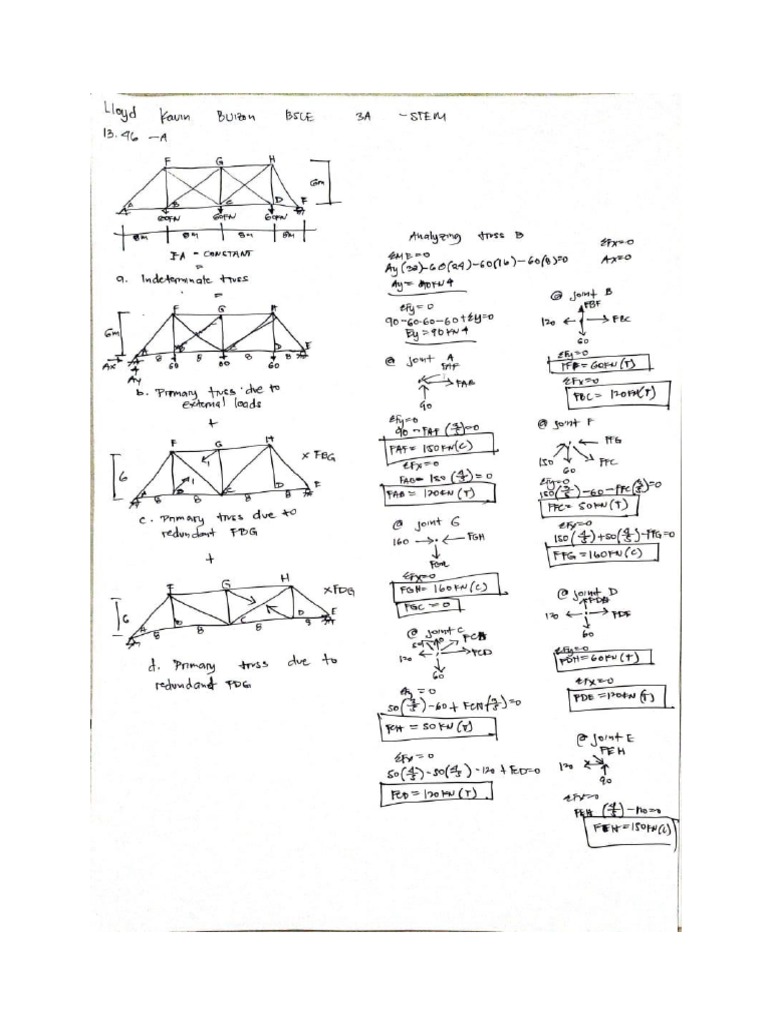 Lloyd Kavin BUIZON BSCE 3A -STEM
13.46 -A
F G H
6m
A B C D E
60KN 60KN 60KN
8m 8m 8m 8m
EA = CONSTANT
=
a. Indeterminate truss
=
F G H
6m
A B C D E
Ax 8 8 8 8
Ay 60 60 60
b. Primary truss due to
external loads
+
F G H
6 1 1 x FBG
A B C D E
8 8 8
c. Primary truss due to
redundant FBG
+
F G H
6 xFDG
A B C D E
8 8 8 8
d. Primary truss due to
redundant FDG
Analyzing truss B
ΣME=0
Ay(32)-60(24)-60(16)-60(8)=0
Ay = 90KN↑
ΣFy=0
90-60-60-60+Ey=0
Ey=90KN↑
@ joint A
FAF
FAB
90
ΣFy=0
90-FAF(3/5)=0
FAF=150KN(C)
ΣFx=0
FAB-150(4/5)=0
FAB=120KN(T)
@ joint G
160 FGH
ΣFx=0
FGH=160KN(C)
FGC=0
@ joint C
50 FCH
120 FCD
60
Σfy=0
50(3/5)-60+FCH(3/5)=0
FCH=50KN(T)
ΣFx=0
50(4/5)-50(4/5)-120+FCD=0
FCD=120KN(T)
ΣFx=0
Ax=0
@ joint B
FBF
120 FBC
60
ΣFy=0
FFB=60KN(T)
ΣFx=0
FBC=120KN(T)
@ joint F
FFG
150 60 FFC
ΣFy=0
150(3/5)-60-FFC(3/5)=0
FFC=50KN(T)
ΣFx=0
150(4/5)+50(4/5)-FFG=0
FFG=160KN(C)
@ joint D
FDH
120 FDE
60
ΣFy=0
FDH=60KN(T)
ΣFx=0
FDE=120KN(T)
@ joint E
FEH
120
90
ΣFx=0
FEH(4/5)-120=0
FEH=150KN(C)